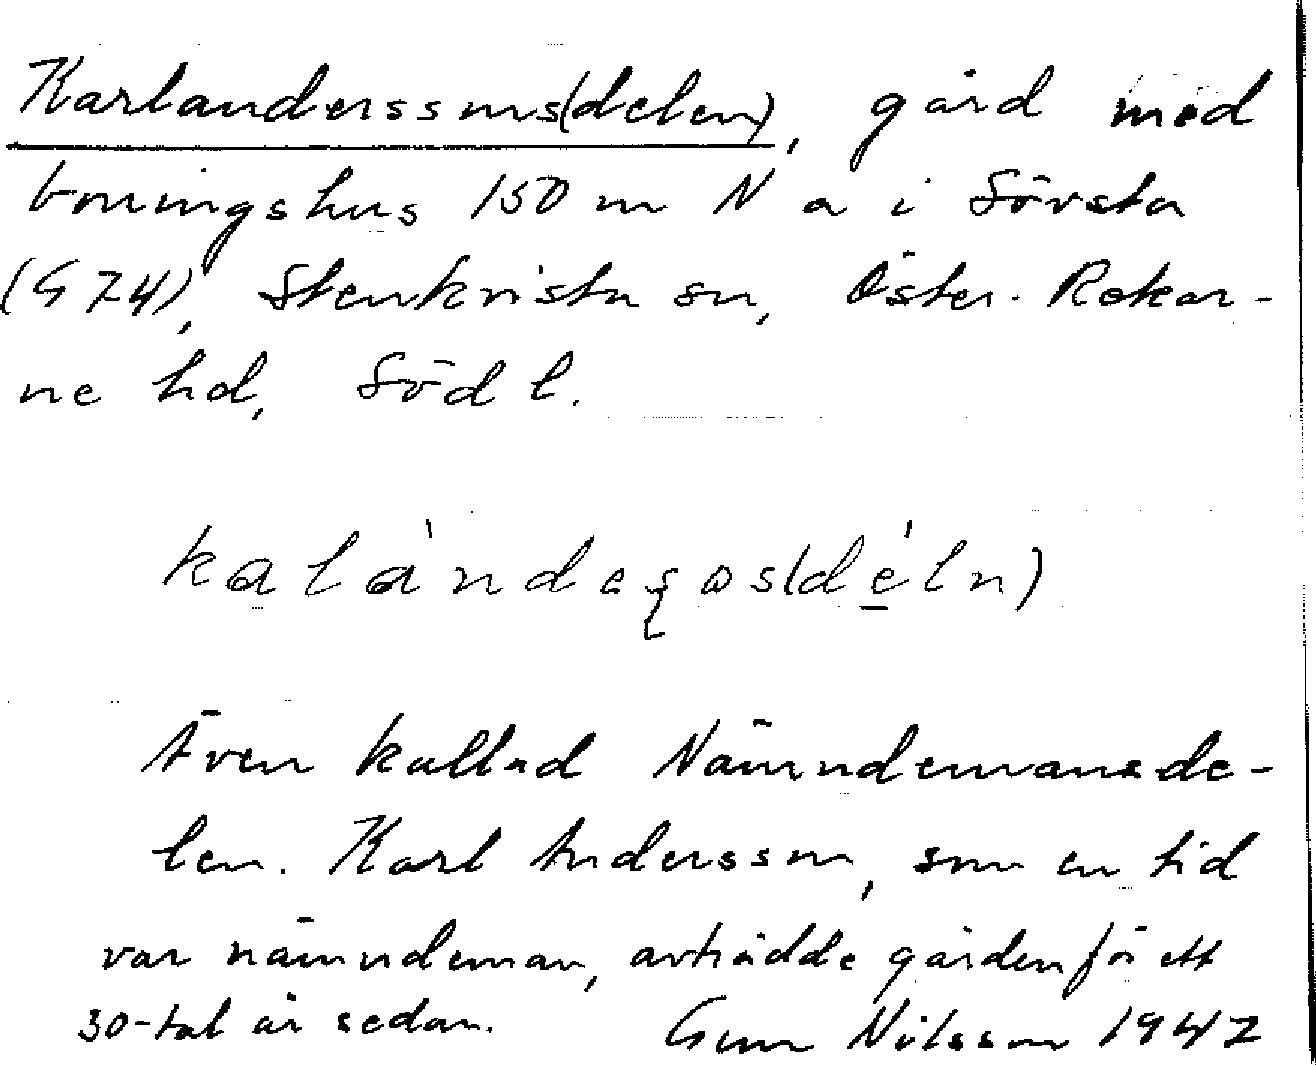 Karlanderssons(delen), gård med
boningshus 150 m N a i Sörsta
(G 74), Stenkvista sn, Öster-Rekar-
ne hd, Söd l.
Även kallad Nämndemansde-
len. Karl Andersson, som en tid
var nämndeman, avträdde gården för ett
30-tal år sedan. Gun Nilsson 1947